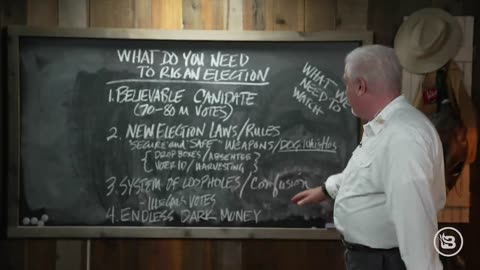 WHAT DO YOU NEED
TO RIG AN ELECTION
1. BELIEVABLE CANIDATE
(70-80 M VOTES)
2. NEW ELECTION LAWS/RULES
"SECURE AND SAFE" WEAPONS/DOG WHISTLES
{DROP BOXES/ABSENTEE
{VOTER ID/HARVESTING}
3. SYSTEM OF LOOPHOLES/Confusion
- ILLEGAL VOTES
4. ENDLESS DARK MONEY
WHAT WE
NEED TO
WATCH
B